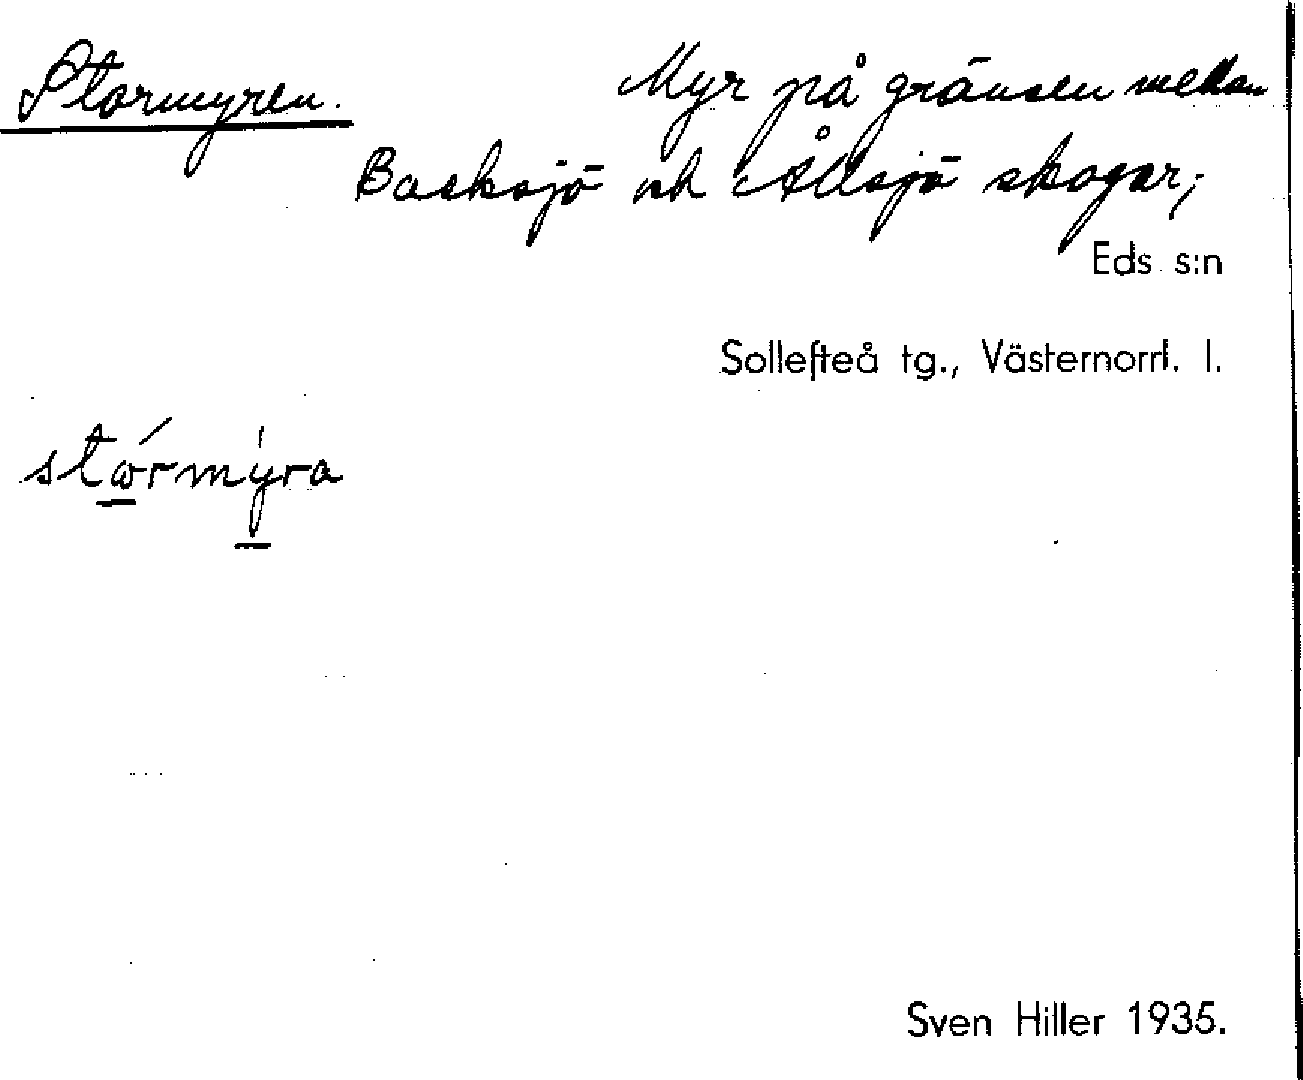 Stormyren. Myr på gränsen mellan
Backsjö och Ållsjö skogar;
Eds s:n
Sollefteå tg., Västernorrl. l.
stώ̲rmy̲̍ra
Sven Hiller 1935.